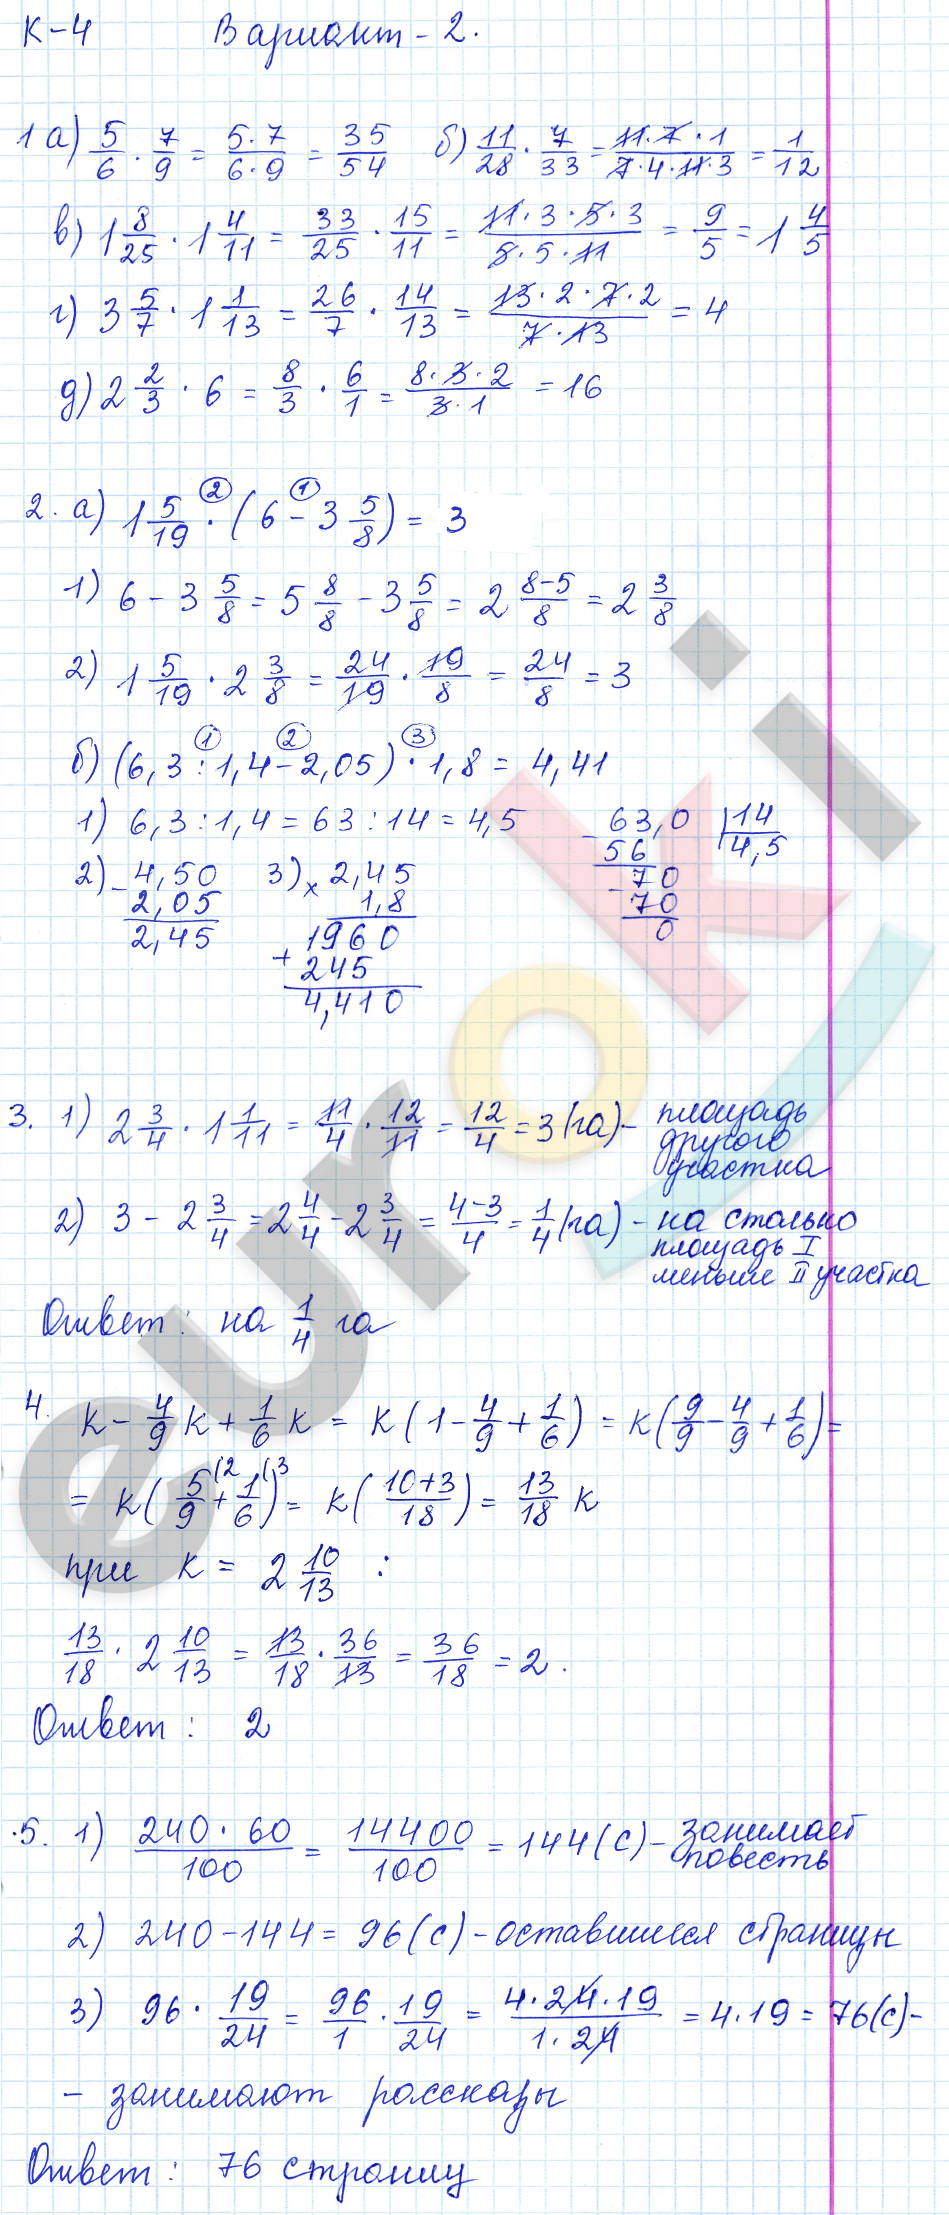 К-4 Вариант - 2.
1 а) 5/6 · 7/9 = 5·7/6·9 = 35/54 б) 11/28 · 7/33 = 11·7·1/7·4·11·3 = 1/12
в) 1 8/25 · 1 4/11 = 33/25 · 15/11 = 11·3·5·3/5·5·11 = 9/5 = 1 4/5
г) 3 5/7 · 1 1/13 = 26/7 · 14/13 = 13·2·7·2/7·13 = 4
д) 2 2/3 · 6 = 8/3 · 6/1 = 8·3·2/3·1 = 16
2. а) 1 5/19 ·② (6 -① 3 5/8) = 3
1) 6 - 3 5/8 = 5 8/8 - 3 5/8 = 2 8-5/8 = 2 3/8
2) 1 5/19 · 2 3/8 = 24/19 · 19/8 = 24/8 = 3
б) (6,3 :① 1,4 -② 2,05) ·③ 1,8 = 4,41
1) 6,3 : 1,4 = 63 : 14 = 4,5 - 63,0 14
56 4,5
2) - 4,50 3) × 2,45 - 70
2,05 1,8 70
2,45 1960 0
+ 245
4,410
3. 1) 2 3/4 · 1 1/11 = 11/4 · 12/11 = 12/4 = 3 (га) - площадь
другого
участка
2) 3 - 2 3/4 = 2 4/4 - 2 3/4 = 4-3/4 = 1/4 (га) - на столько
площадь I
меньше II участка
Ответ: на 1/4 га
4. k - 4/9 k + 1/6 k = k (1 - 4/9 + 1/6) = k (9/9 - 4/9 + 1/6) =
= k (5/9 (2 + 1/6 (3) = k (10+3/18) = 13/18 k
при k = 2 10/13 :
13/18 · 2 10/13 = 13/18 · 36/13 = 36/18 = 2.
Ответ: 2
5. 1) 240·60/100 = 14400/100 = 144 (с) - занимает
повесть
2) 240 - 144 = 96 (с) - оставшиеся страницы
3) 96 · 19/24 = 96/1 · 19/24 = 4·24·19/1·24 = 4·19 = 76 (с) -
- занимают рассказы
Ответ: 76 страниц
euroki